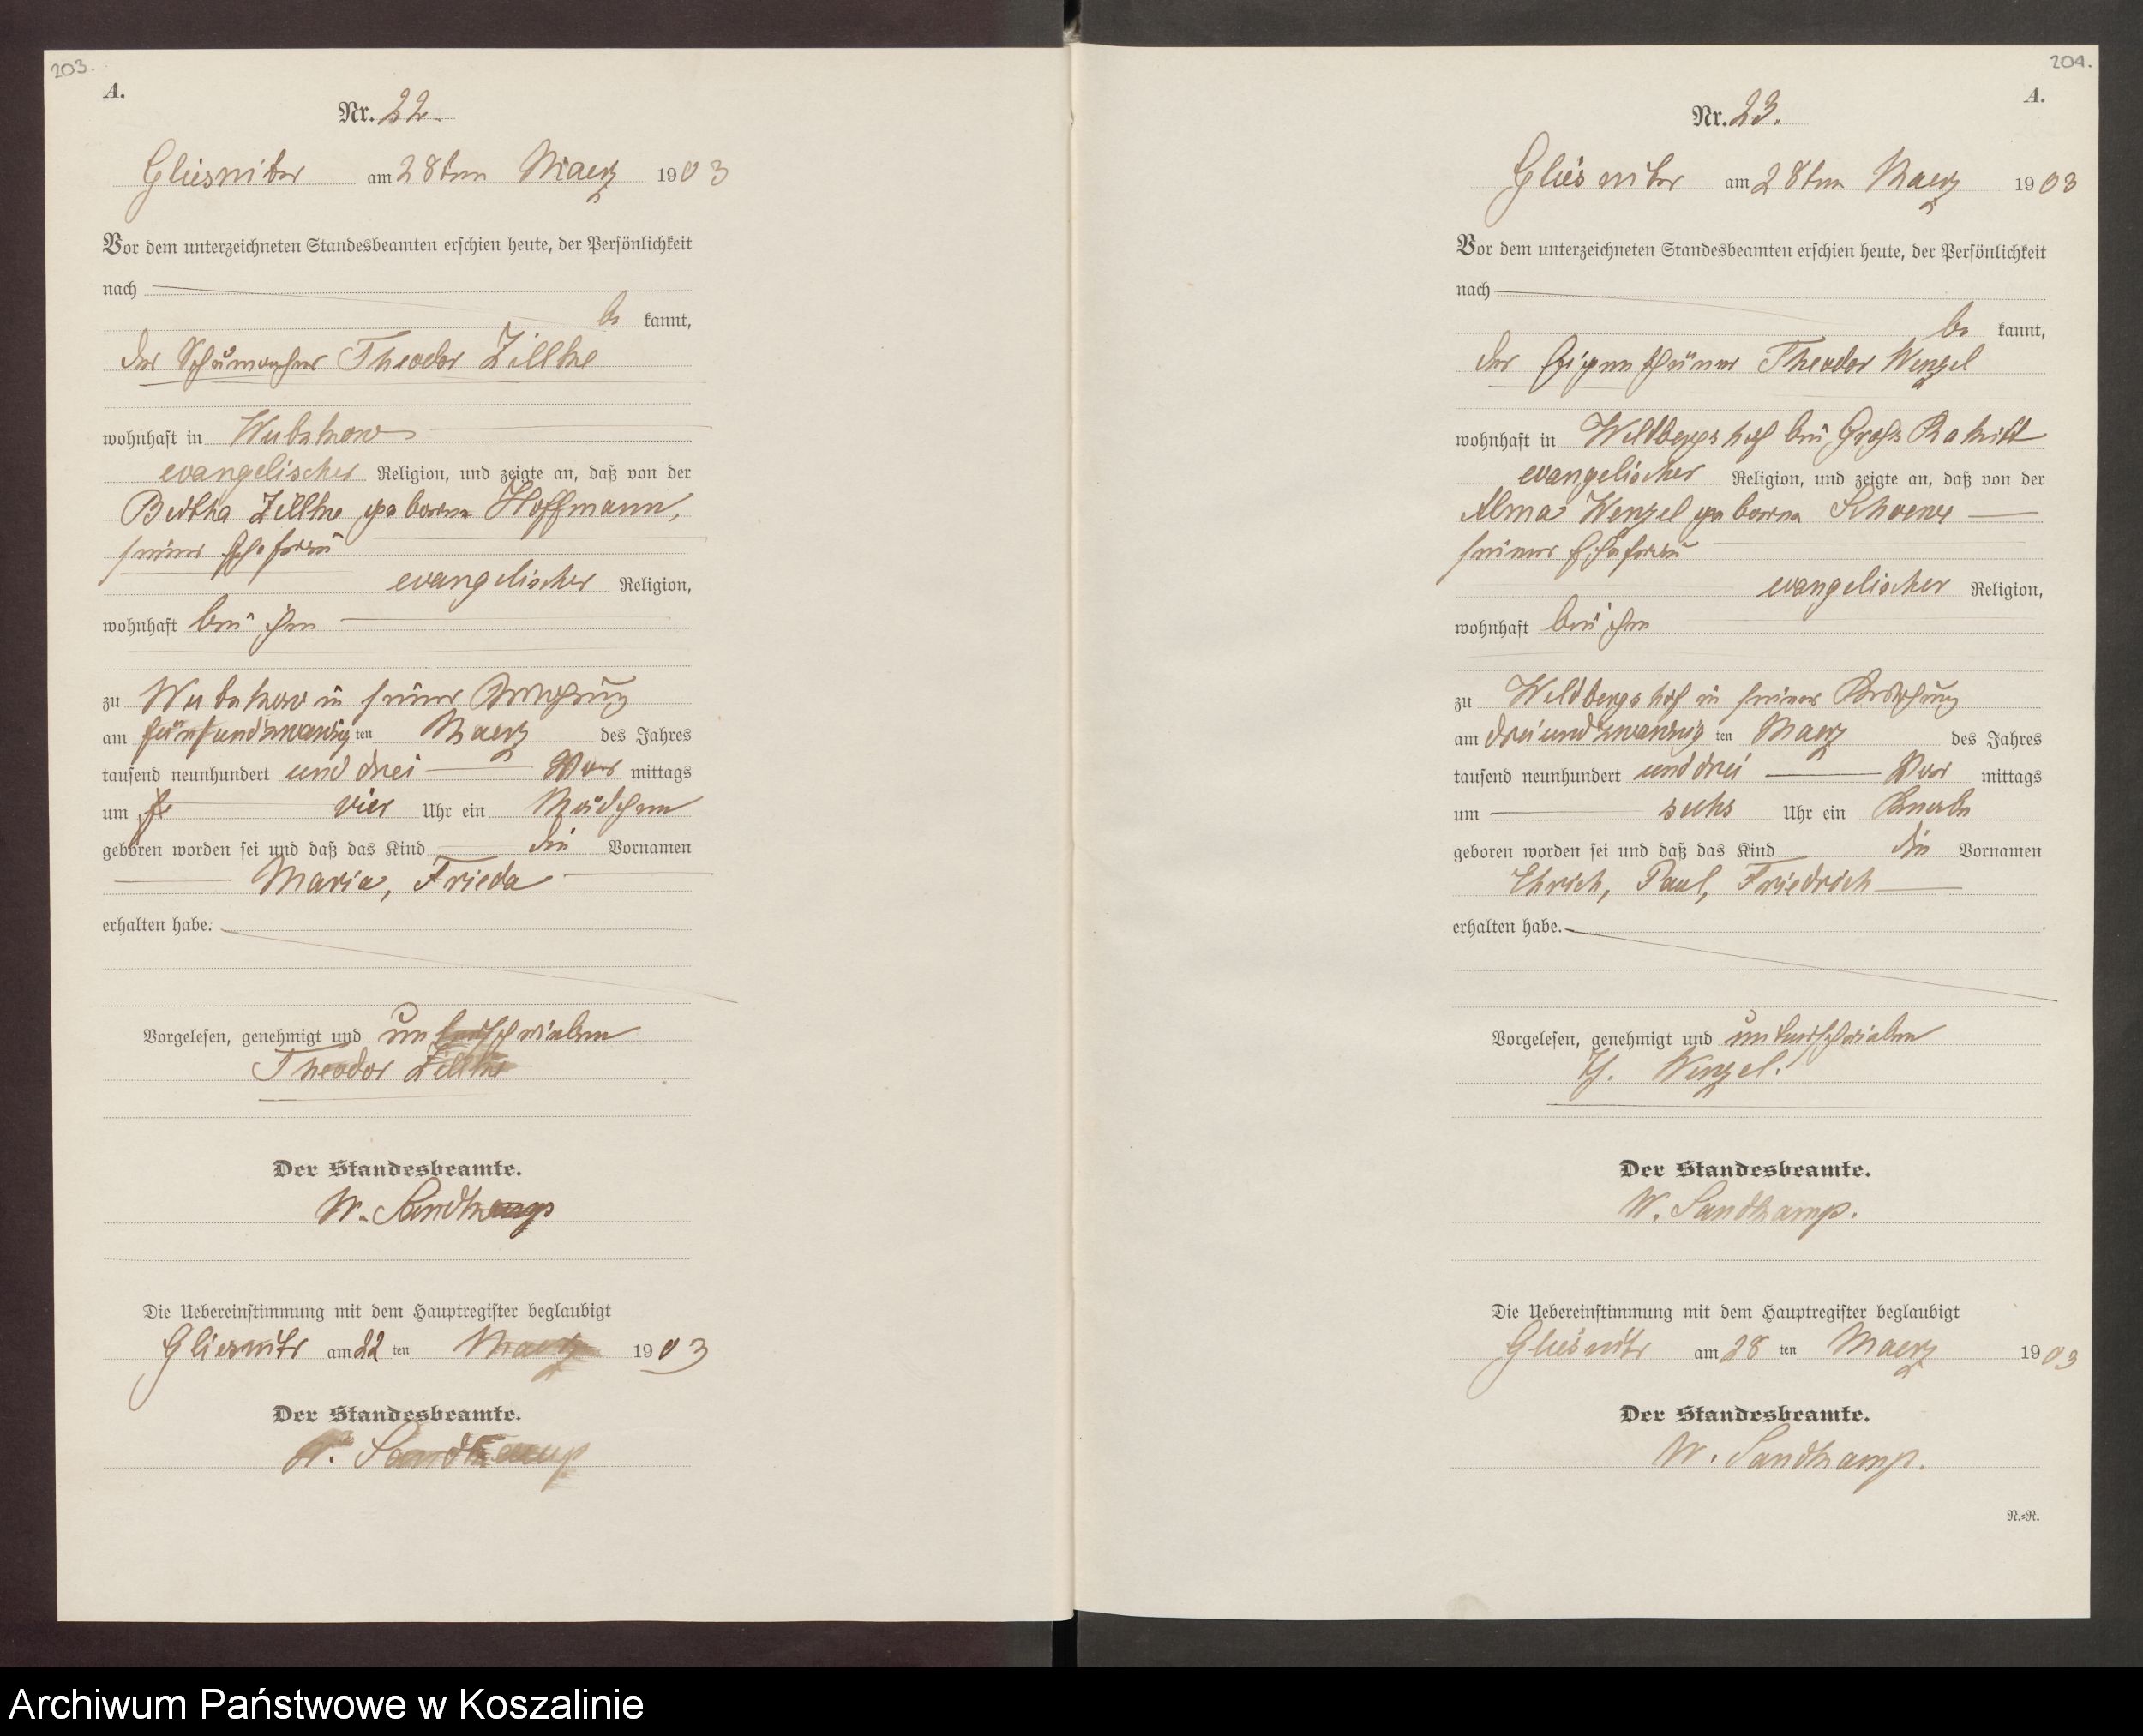 203.
A.
Nr. 22.
Gliesnitz am 28ten Maerz 1903
Vor dem unterzeichneten Standesbeamten erschien heute, der Persönlichkeit
nach
be kannt,
der Schumacher Theodor Zillke
wohnhaft in Wubkow
evangelischer Religion, und zeigte an, daß von der
Bertha Zillke geborene Hoffmann,
seiner Ehefrau
evangelischer Religion,
wohnhaft bei ihm
zu in seiner Wohnung
am fünfundzwanzig ten Maerz des Jahres
tausend neunhundert und drei Vor mittags
um vier Uhr ein Mädchen
geboren worden sei und daß das Kind die Vornamen
Maria, Frieda
erhalten habe.
Vorgelesen, genehmigt und unterschrieben
Theodor Zillke
Der Standesbeamte.
W. Sandkamp
Die Uebereinstimmung mit dem Hauptregister beglaubigt
Gliesnitz am 22 ten Maerz 1903
Der Standesbeamte.
W. Sandkamp
204.
A.
Nr. 23.
Gliesnitz am 28ten Maerz 1903
Vor dem unterzeichneten Standesbeamten erschien heute, der Persönlichkeit
nach
be kannt,
der Eigenthümer Theodor Wenzel
wohnhaft in Wildbergshof bei Groß Rakitt
evangelischer Religion, und zeigte an, daß von der
Alma Wenzel geborene
seiner Ehefrau
evangelischer Religion,
wohnhaft bei ihm
zu Wildbergshof in seiner Wohnung
am dreiundzwanzig ten Maerz des Jahres
tausend neunhundert und drei Vor mittags
um sechs Uhr ein Knabe
geboren worden sei und daß das Kind die Vornamen
Ehrich, Paul, Friedrich
erhalten habe.
Vorgelesen, genehmigt und unterschrieben
Th. Wenzel.
Der Standesbeamte.
W. Sandkamp.
Die Uebereinstimmung mit dem Hauptregister beglaubigt
Gliesnitz am 28 ten Maerz 1903
Der Standesbeamte.
W. Sandkamp.
N.=R.
Archiwum Państwowe w Koszalinie